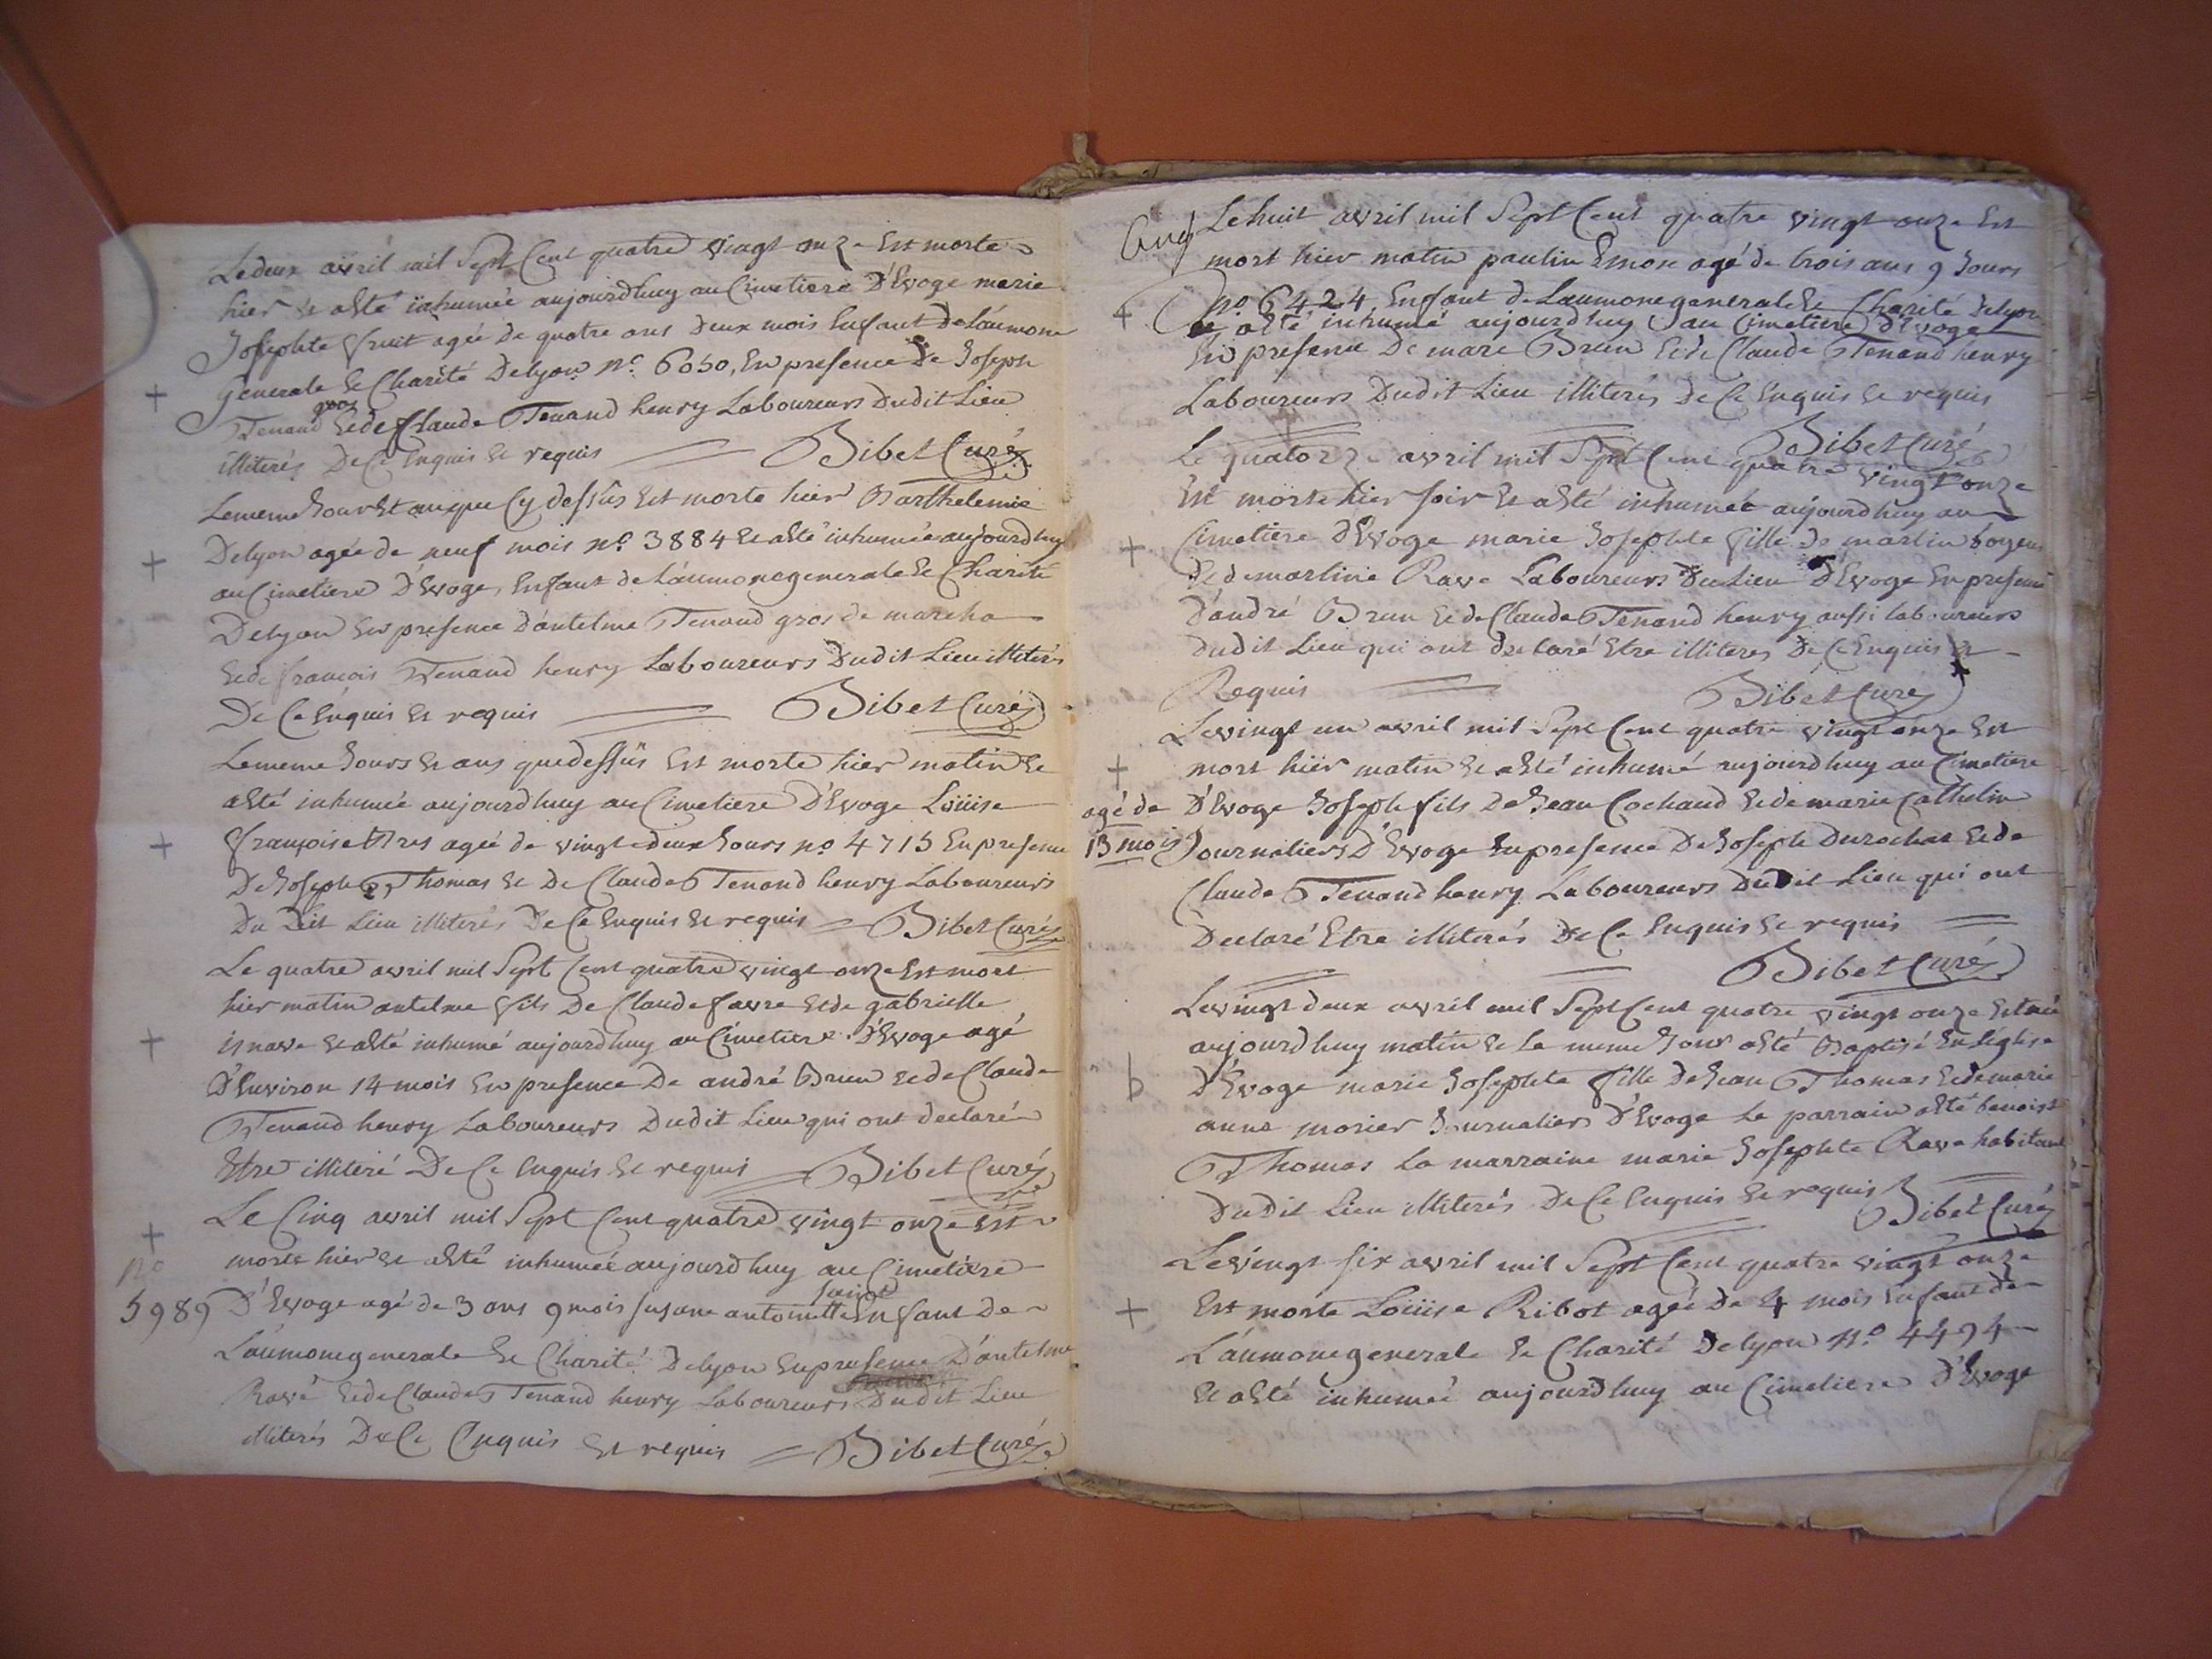 Le deux avril mil Sept Cent quatre vingt onze Est morte
hier & a Eté inhumée aujourdhuy au Cimetiere D'Evoge marie
Josephte fruit agée de quatre ans Deux mois Enfant De L'áumone
generale & Charité De lyon N.º 6050, En presence De Joseph
Tenand gros & de Claude Tenand henry Laboureurs Dudit Lieu
illiterés De Ce Enquis & requis Bibet Curé
Le meme Jour Et an que Cy dessus Est morte hier Barthelemie
De lyon agée de neuf mois N.º 3884 & a Eté inhumée aujourdhuy
au Cimetiere D'Evoge, Enfant de L'áumone generale & Charité
De lyon En presence D'antelme Tenand gros de
& de françois Tenand henry Laboureurs Dudit Lieu illiterés
De Ce Enquis & requis Bibet Curé
Le meme Jours & ans que dessus Est morte hier matin &
a Eté inhumée aujourdhuy au Cimetiere D'Evoge Loüise
françoise agée de vingt deux Jours No 4715 En presence
De Joseph Thomas & De Claude Tenand henry Laboureurs
Du Dit Lieu illiterés De Ce Enquis & requis Bibet Curé
Le quatre avril mil Sept Cent quatre vingt onze Est mort
hier matin antelme fils De Claude favre & de gabrielle
& a Eté inhumé aujourdhuy au Cimetiere D'Evoge agé
D'Environ 14 mois En presence De andré Brun & de Claude
Tenand henry Laboureurs Dudit Lieu qui ont declaré
Etre illiteré De Ce Enquis & requis Bibet Curé
Le Cinq avril mil Sept Cent quatre vingt onze Est
morte hier & a Eté inhumée aujourdhuy au Cimetiere
No
5989 D'Evoge agé de 3 ans 9 mois susane antoinette Enfant De
L'áumone generale & Charité De lyon En presence D'antelme
Rave & de Claude Tenand henry Laboureurs Dudit Lieu
illiterés De Ce Enquis & requis Bibet Curé
Le huit avril mil Sept Cent quatre vingt onze Est
mort hier matin paulin agé de trois ans 9 Jours
N.º 6424, Enfant de Laumone generale & Charité De lyon
& a Eté inhumé aujourdhuy au Cimetiere D'Evoge
En presence De marc Brun & de Claude Tenand henry
Laboureurs Dudit Lieu illiterés De Ce Enquis & requis
Bibet Curé
Le quatorze avril mil Sept Cent quatre vingt onze
Est morte hier soir & a Eté inhumée aujourdhuy au
Cimetiere D'Evoge marie Josephte fille de martin
& de martine Rave Laboureurs Du Lieu D'Evoge En presence
D'andré Brun & de Claude Tenand henry aussi laboureurs
Dudit Lieu qui ont declaré Etre illiterés De Ce Enquis &
Requis Bibet Curé
Le vingt un avril mil Sept Cent quatre vingt onze Est
mort hier matin & a Eté inhumé aujourdhuy au Cimetiere
agé de D'Evoge Joseph fils De Jean Cochaud & de marie Cathelin
13 mois Journaliers D'Evoge En presence De Joseph Durochat & de
Claude Tenand henry Laboureurs Dudit Lieu qui ont
Declaré Etre illiterés De Ce Enquis & requis
Bibet Curé
Le vingt deux avril mil Sept Cent quatre vingt onze Est née
aujourdhuy matin & Le meme Jour a Eté Baptisé En L'église
b D'Evoge marie Josephte fille De Jean Thomas & de marie
anne morier Journaliers D'Evoge Le parrain a Eté benoist
Thomas La marraine marie Josephte Rave habitant
Dudit Lieu illiterés De Ce Enquis & requis Bibet Curé
Le vingt six avril mil Sept Cent quatre vingt onze
Est morte Loüise Ribot agée De 4 mois Enfant de
L'áumone generale & Charité De lyon N.º 4494
& a Eté inhumée aujourdhuy au Cimetiere D'Evoge